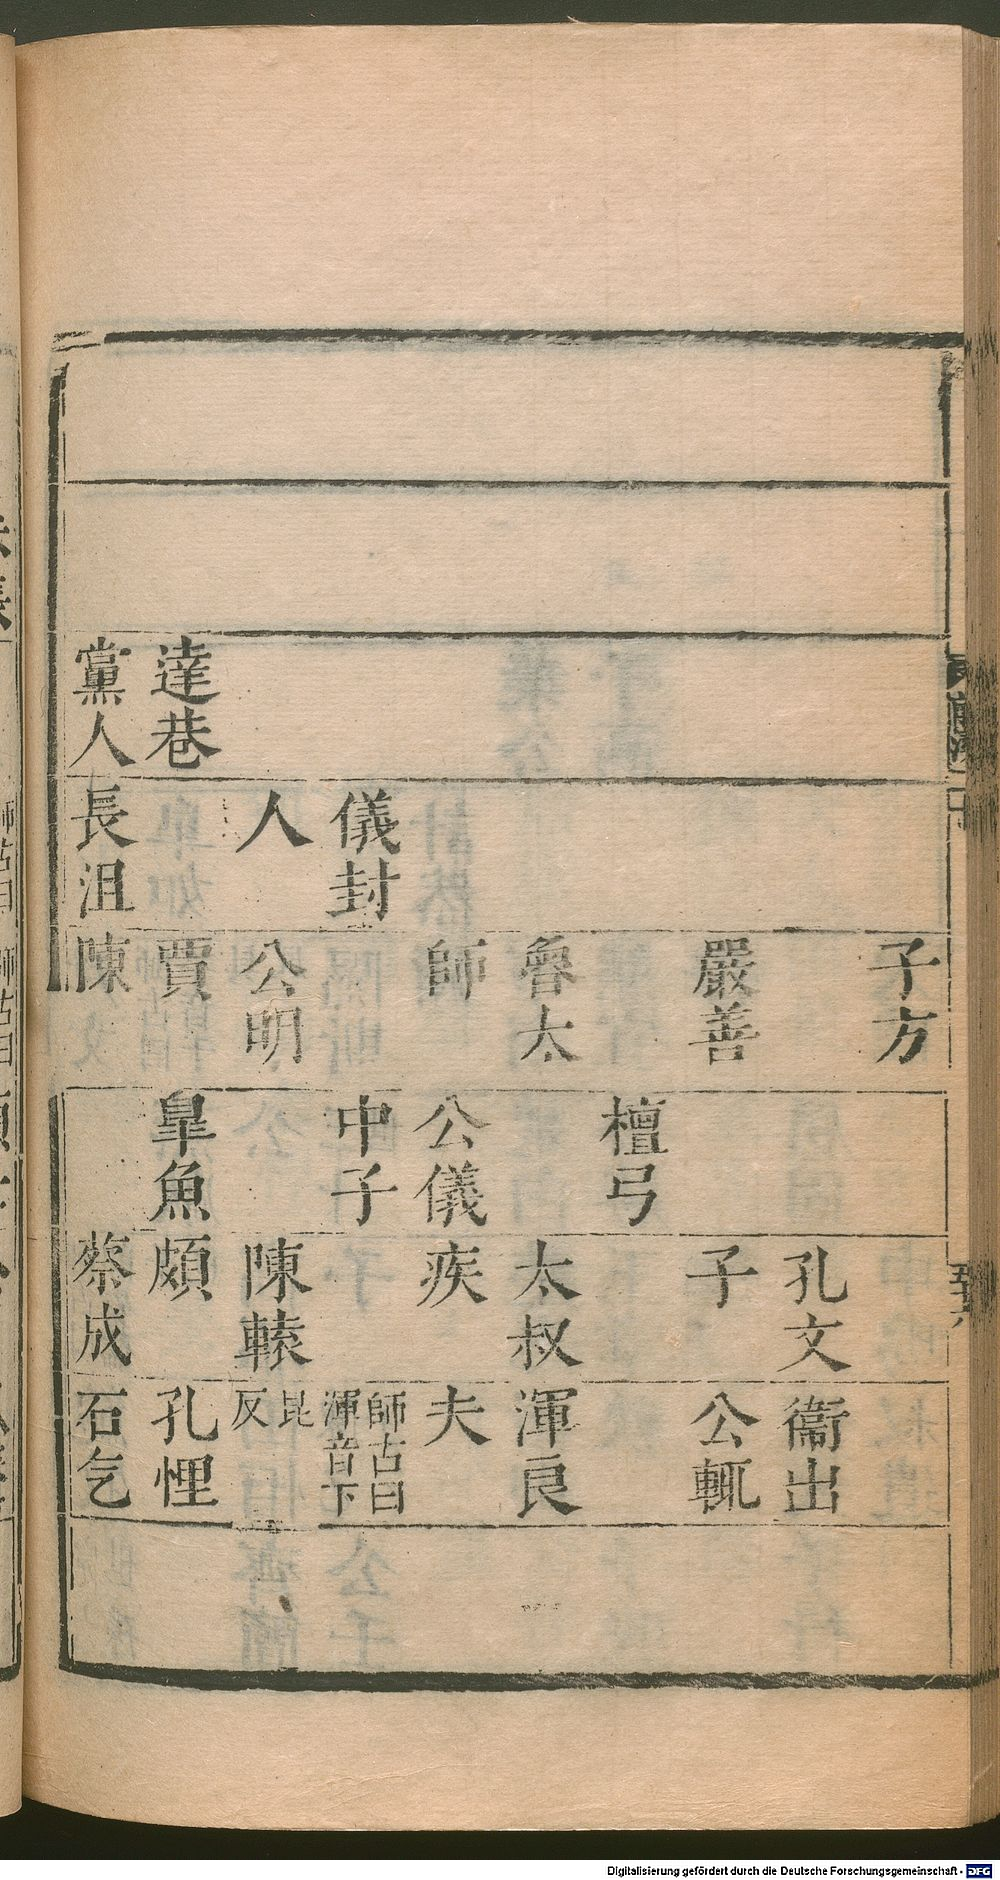 子方
孔文
衞出
嚴善
子
公輒
檀弓
魯太
太叔
渾良
師
公儀
疾
夫
儀封
中子
師古曰
渾音下
人
公明
陳轅
昆
反
達巷
賈
皐魚
頗
孔悝
黨人
長沮
陳
蔡成
石乞
Digitalisierung gefördert durch die Deutsche Forschungsgemeinschaft - DFG